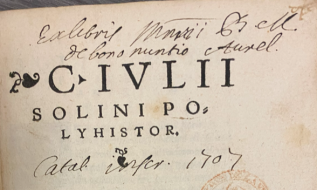 Ex libris
de bono nuntio Aurel.
C. IVLII
SOLINI PO-
LYHISTOR.
Catal. inscr. 1707